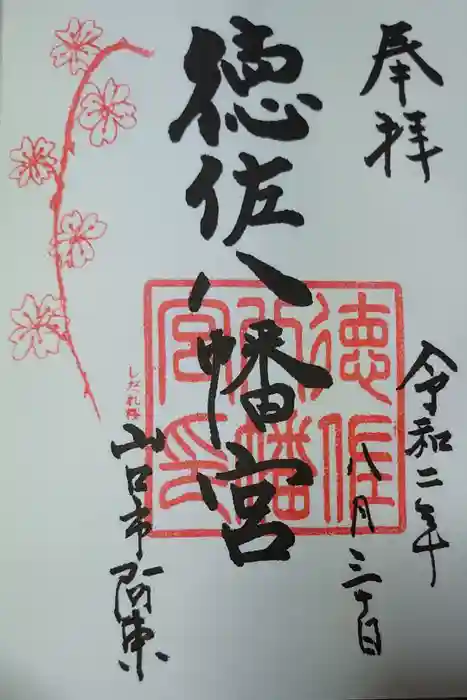 奉拝
令和二年
八月三十日
徳佐八幡宮
徳佐八幡宮印
しだれ桜
山口市阿東